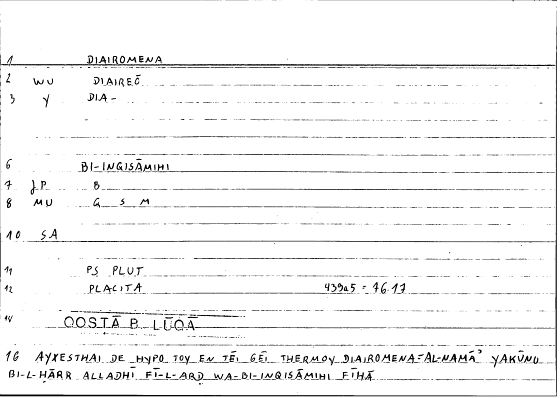 1 DIAIROMENA
2 WU DIAIREŌ
3 Y DIA-
6 BI-INQISĀMIHI
7 JP B
8 MU Q S M
10 ṢA
11 PS PLUT
12 PLACITA 439a5 = 76.17
14 QOSṬĀ B. LŪQĀ
16 AYXESTHAI DE HYPO TOY EN TĒI GĒI THERMOY DIAIROMENA = AL-NAMĀʾ YAKŪNU
BI-L-ḤĀRR ALLADHĪ FĪ-L-ARḌ WA-BI-INQISĀMIHI FĪHĀ